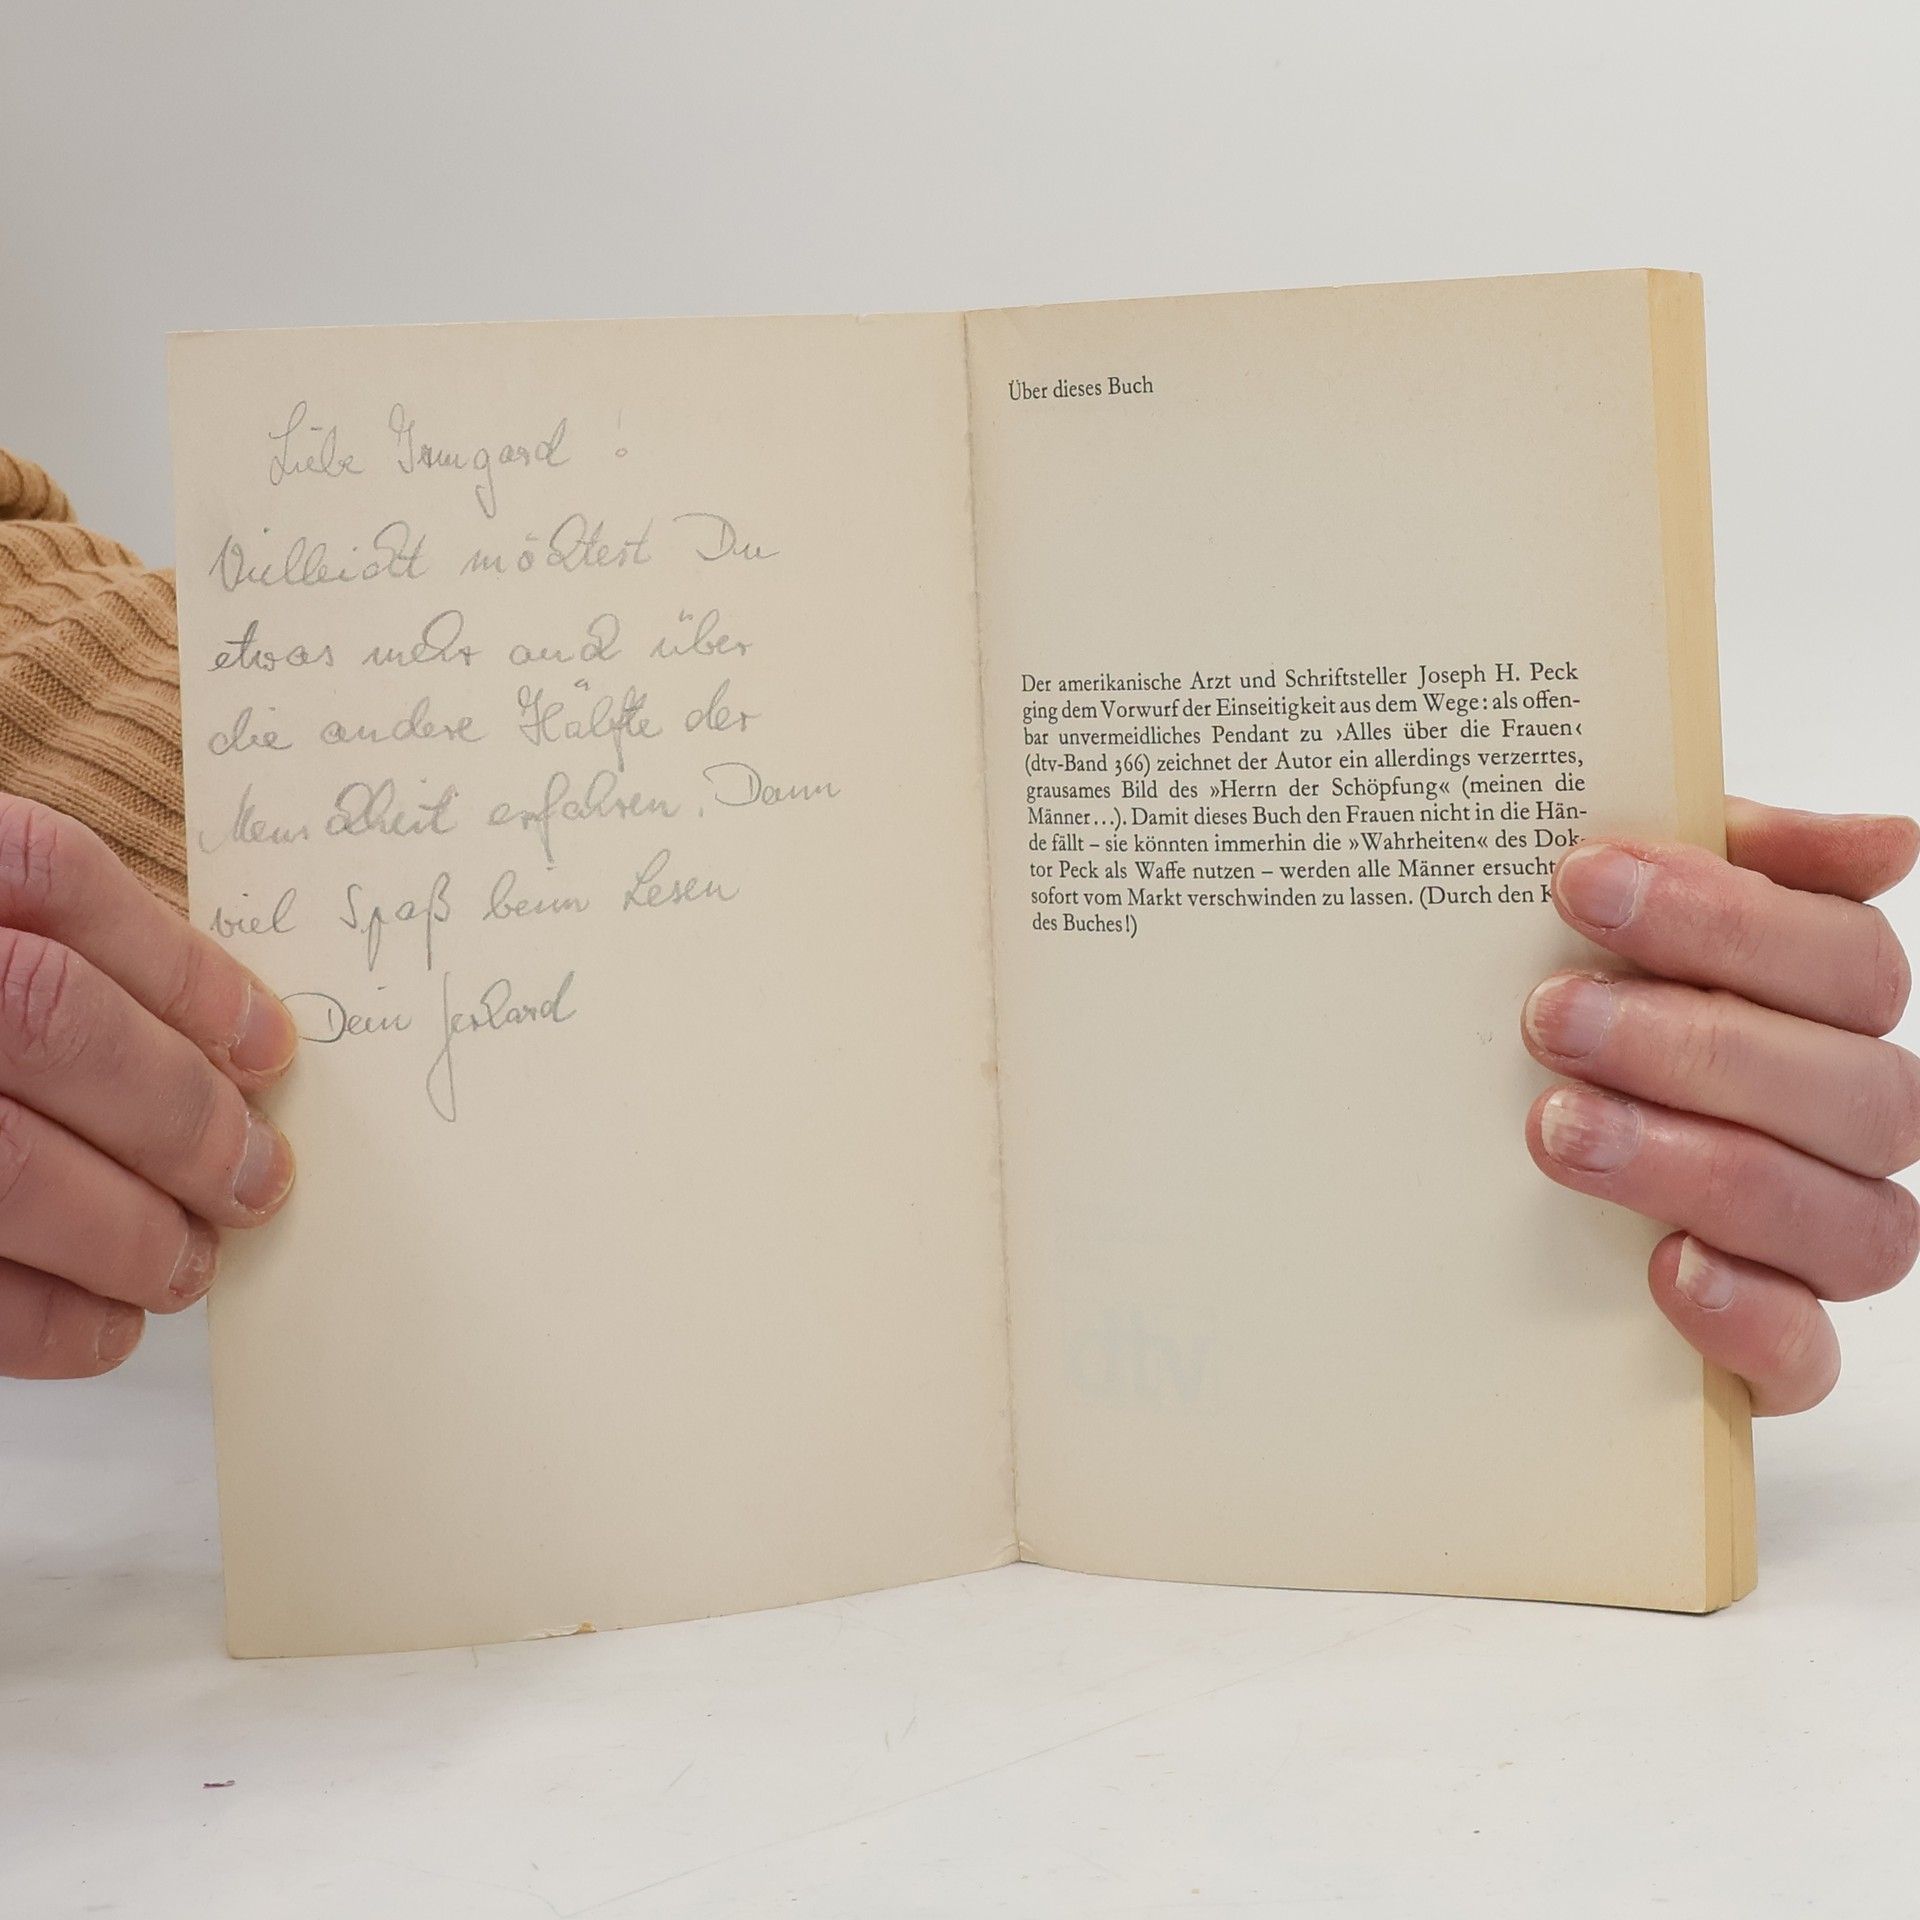 Liebe Irmgard!
Vielleicht möchtest Du
etwas mehr auch über
die andere Hälfte der
Menschheit erfahren. Dann
viel Spaß beim Lesen
Dein Gerhard
Über dieses Buch
Der amerikanische Arzt und Schriftsteller Joseph H. Peck
ging dem Vorwurf der Einseitigkeit aus dem Wege: als offen-
bar unvermeidliches Pendant zu ›Alles über die Frauen‹
(dtv-Band 366) zeichnet der Autor ein allerdings verzerrtes,
grausames Bild des »Herrn der Schöpfung« (meinen die
Männer...). Damit dieses Buch den Frauen nicht in die Hän-
de fällt – sie könnten immerhin die »Wahrheiten« des Dok-
tor Peck als Waffe nutzen – werden alle Männer ersucht
sofort vom Markt verschwinden zu lassen. (Durch den K
des Buches!)